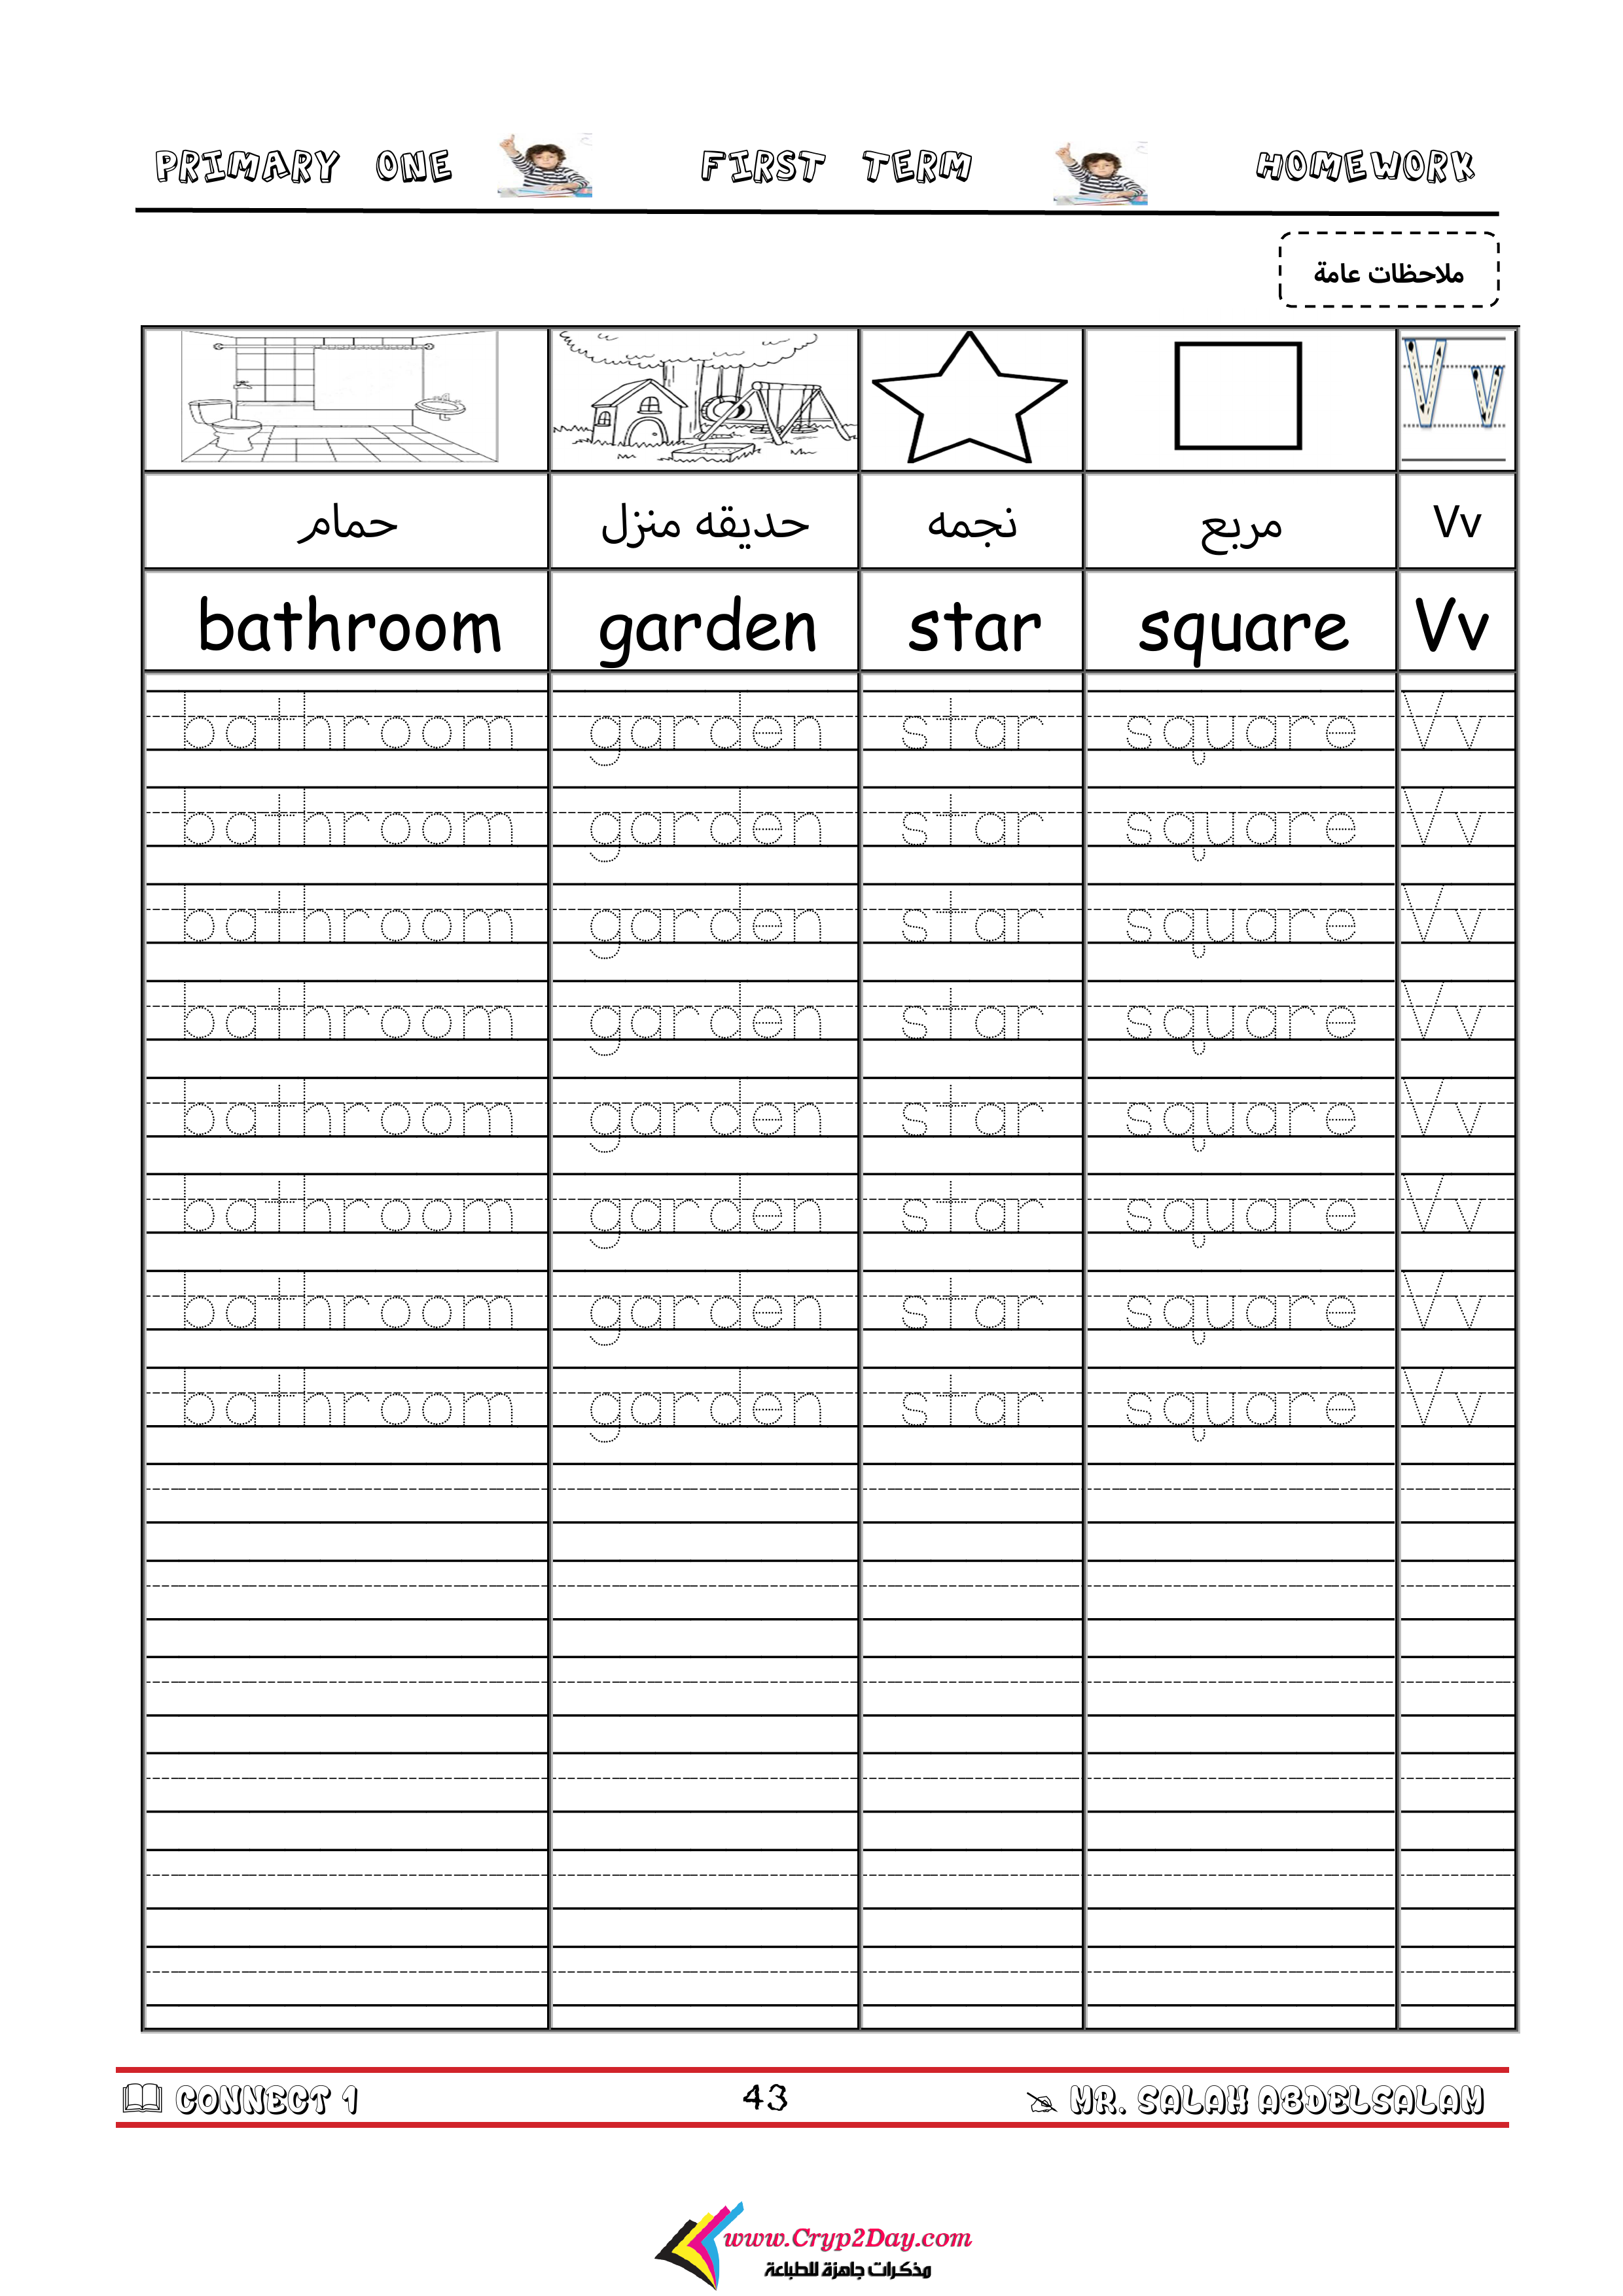 PRIMARY ONE FIRST TERM HOMEWORK
ملاحظات عامة
V v
حمام حديقه منزل نجمه مربع Vv
bathroom garden star square Vv
bathroom garden star square Vv
bathroom garden star square Vv
bathroom garden star square Vv
bathroom garden star square Vv
bathroom garden star square Vv
bathroom garden star square Vv
bathroom garden star square Vv
bathroom garden star square Vv
CONNECT 1 43 MR. SALAH ABDELSALAM
www.Cryp2Day.com
مذكرات جاهزة للطباعة